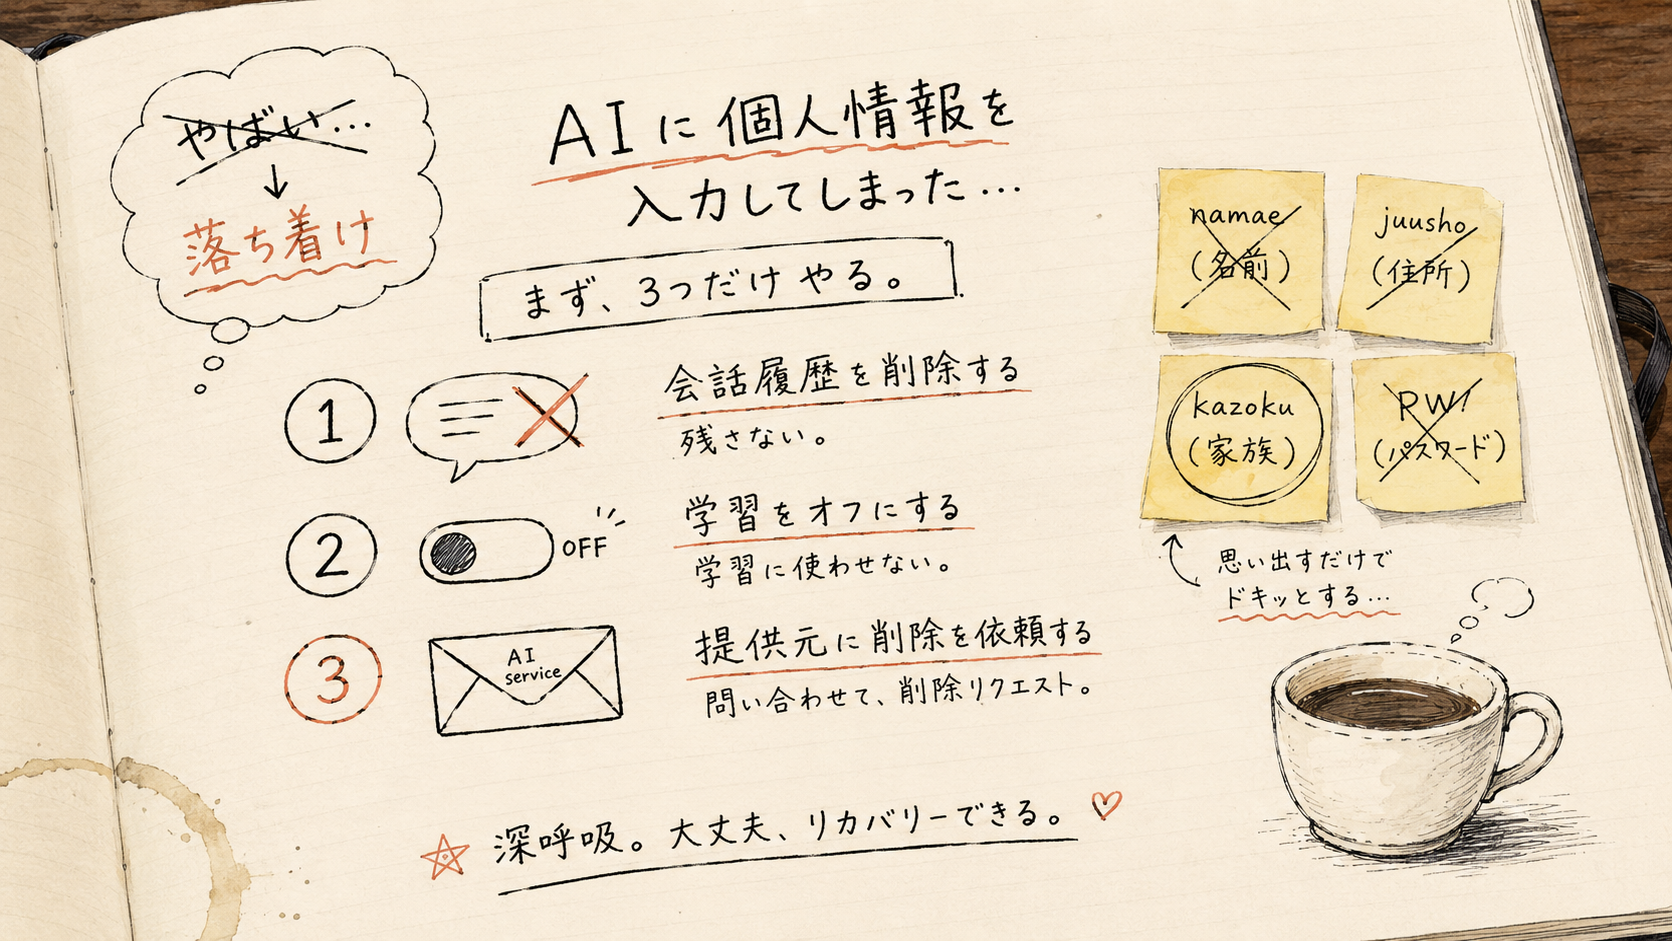 やばい…
↓
落ち着け
AIに個人情報を
入力してしまった…
まず、3つだけやる。
1
会話履歴を削除する
残さない。
2
OFF
学習をオフにする
学習に使わせない。
3
AI
service
提供元に削除を依頼する
問い合わせて、削除リクエスト。
深呼吸。大丈夫、リカバリーできる。
namae
(名前)
juusho
(住所)
kazoku
(家族)
PW!
(パスワード)
思い出すだけで
ドキッとする…